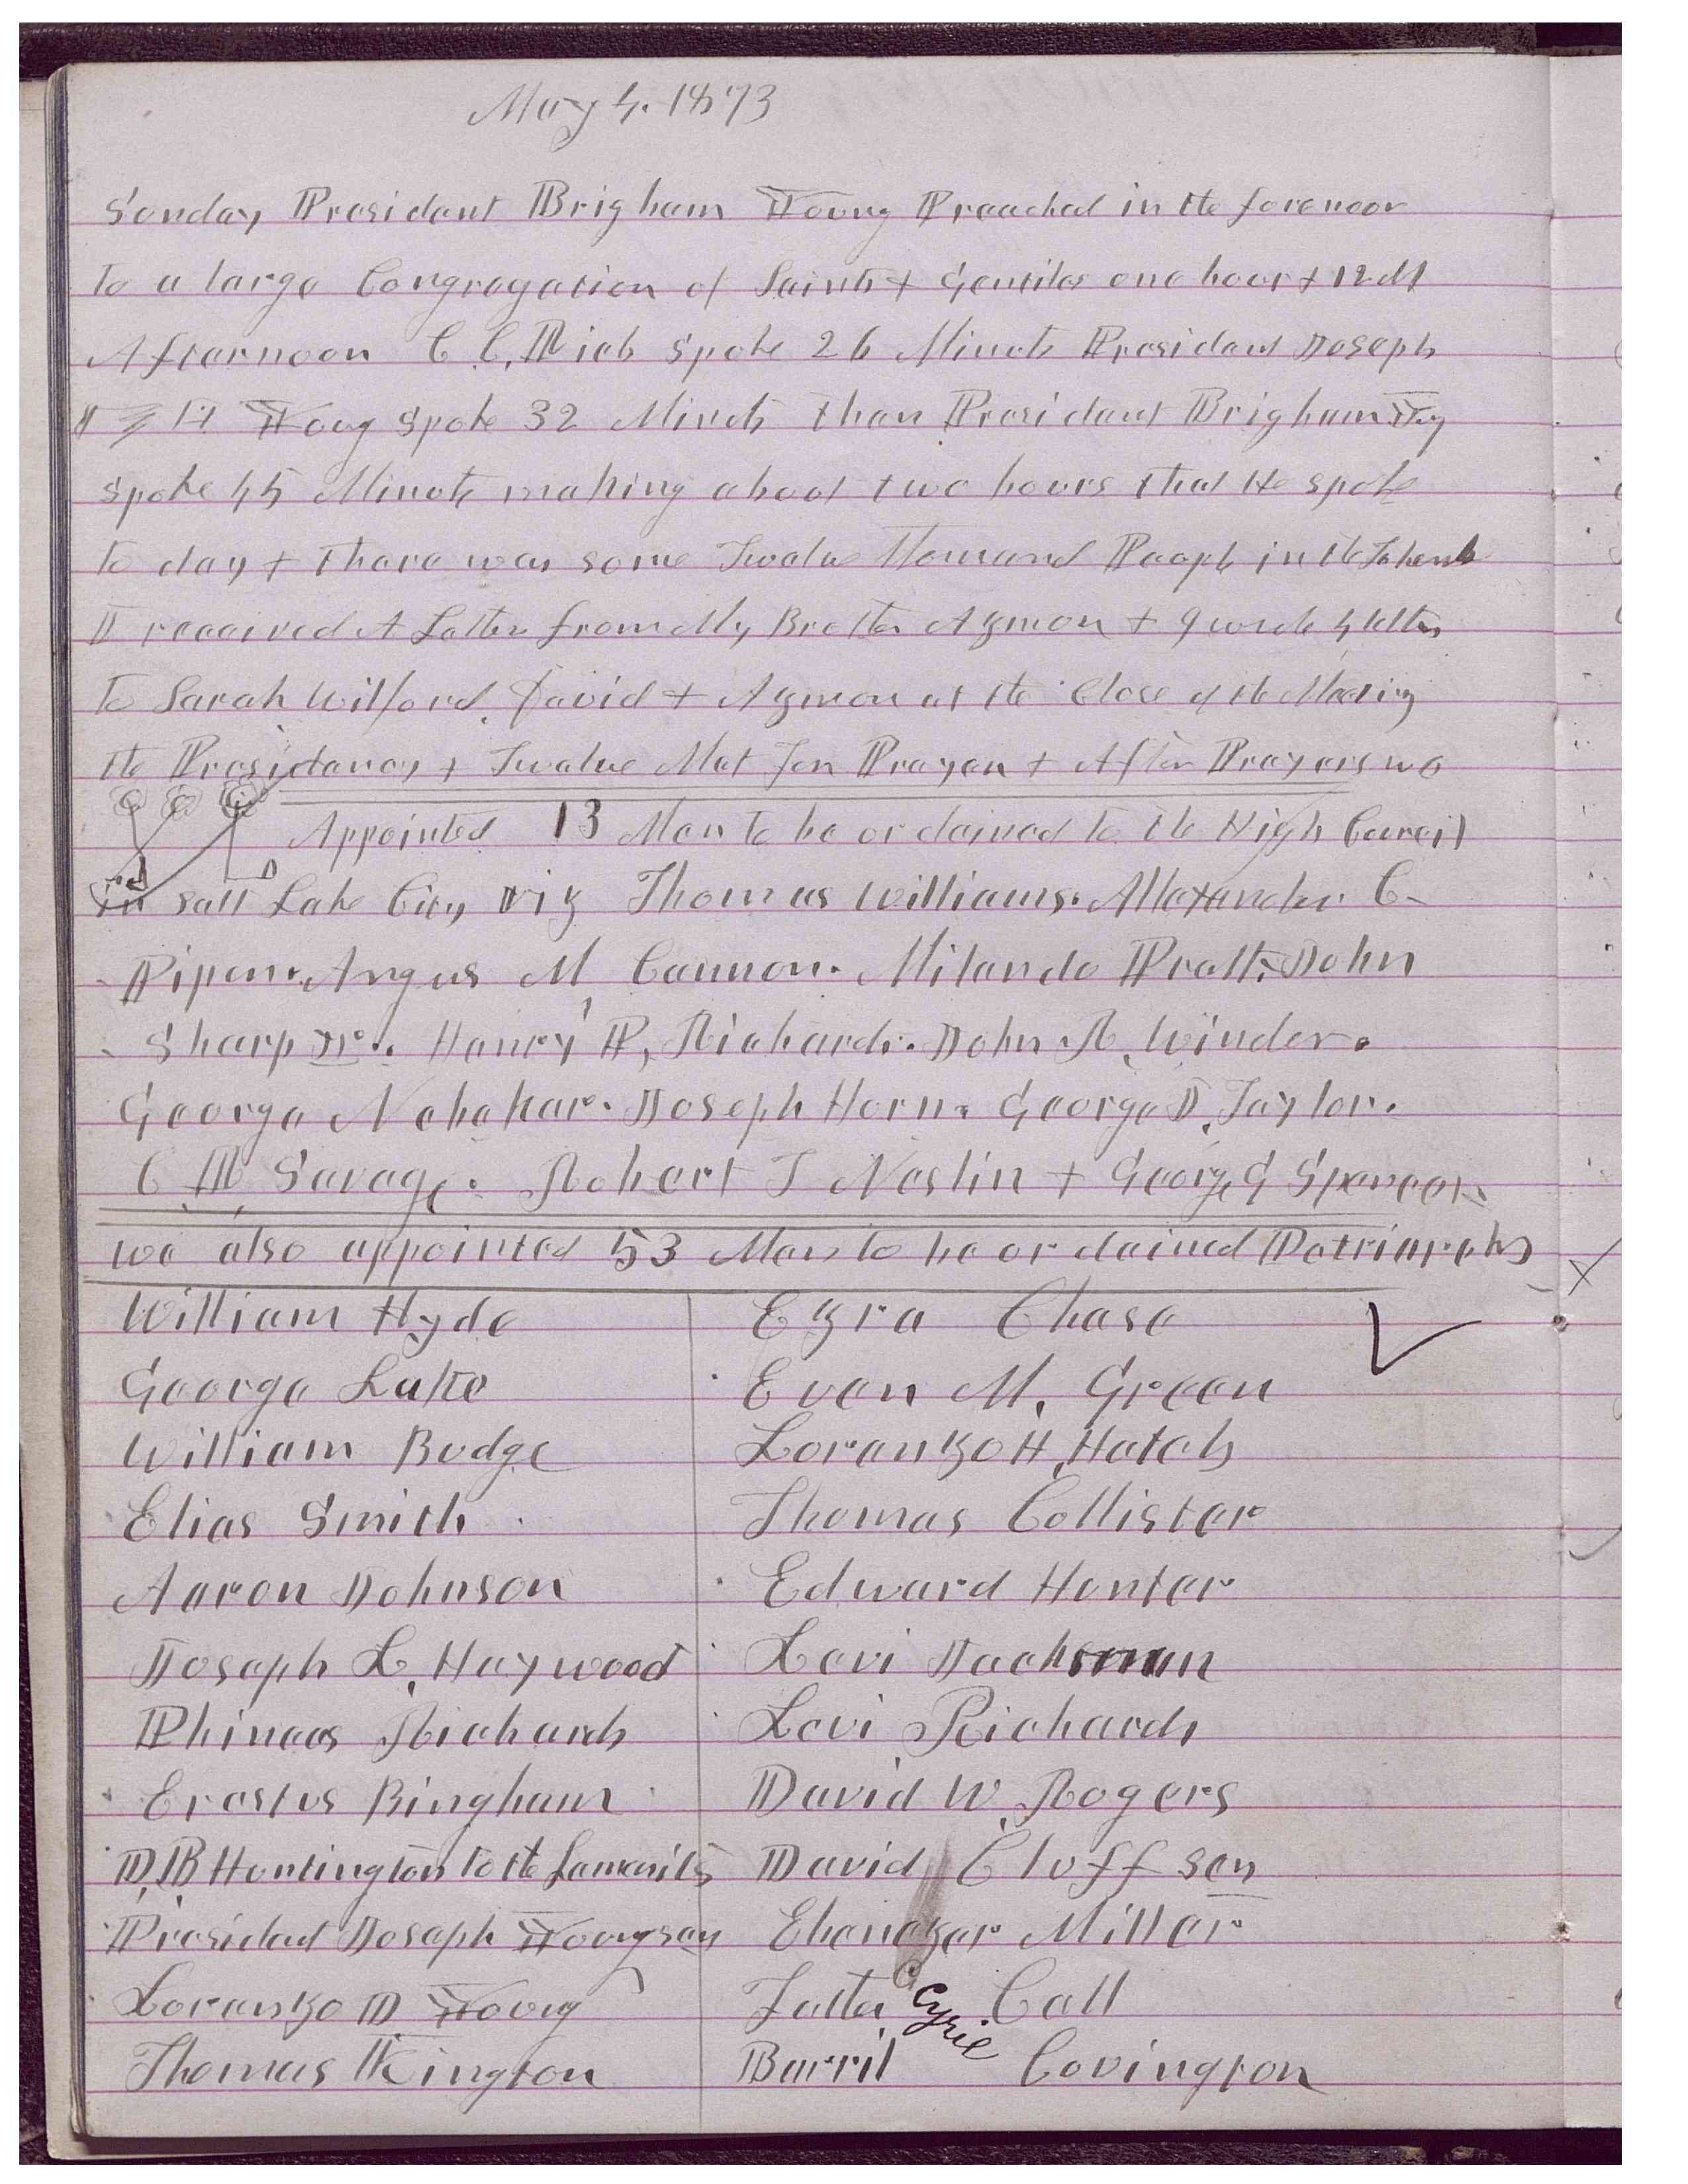 May 4. 1873
Sunday President Brigham Young Preached in the forenoon
to a large Congregation of Saints & Gentiles one hour & 12 M
Afternoon C C, Rich spoke 26 Minuts President Joseph
Young spoke 32 Minuts then President Brigham Yg
spoke 45 Minuts making about two hours that He spoke
to day & there was some Twelve Thousand People in the Tabernl
I received A Letter from My Brother Azmon & I wrote 4 letters
to Sarah Wilford, David & Azmon at the Close of the Meeting
the Presidency & Twelve Met for Prayer & After Prayers we
Appointed 13 Men to be ordained to the High Council
in Salt Lake City viz Thomas Williams. Allexander C.
Piper. Angus M, Cannon. Milando Pratt. John
Sharp Jr. Henry P, Richards. John R, Winder.
George Nebeker. Joseph Horn. George J, Taylor.
C, R, Savage. Robert T Neslin & George G Spencer.
we also appointed 53 Men to be ordained Patriarchs
William Hyde Ezra Chase
George Lake Evan M, Green
William Budge Loranzo H, Hatch
Elias Smith Thomas Collister
Aaron Johnson Edward Hunter
Joseph L, Haywood Levi Jackman
Phinees Richards Levi Richards
Erastus Bingham David W, Rogers
D, B, Huntington to the Lamanits David Cluff sen
President Joseph Young sen Ebenezer Miller
Loranzo D Young Father Cyril Call
Thomas Kington Barril Covington